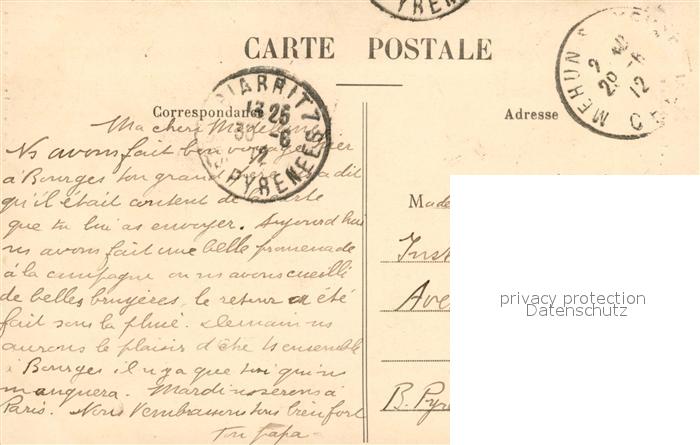 CARTE POSTALE
Correspondance
Adresse
BIARRITZ
13 25
30 -6
12
PYRENEES
MEHUN S YEVRE
20 -6
12
CHER
PYREN
Ma chère Madeleine
Ns avons fait bon voyage hier
à Bourges ton grand père a dit
qu'il était content de la carte
que tu lui as envoyer. Aujourd'hui
ns avons fait une belle promenade
à la campagne ou ns avons cueilli
de belles bruyères, le retour a été
fait sous la pluie. Demain ns
aurons le plaisir d'être ts ensemble
à Bourges il n'y a que toi qui ns
manquera. Mardi ns serons à
Paris. Nous t'embrassons tous bien fort
Ton papa
Made
Inst
Ave
B. Pyr
privacy protection
Datenschutz